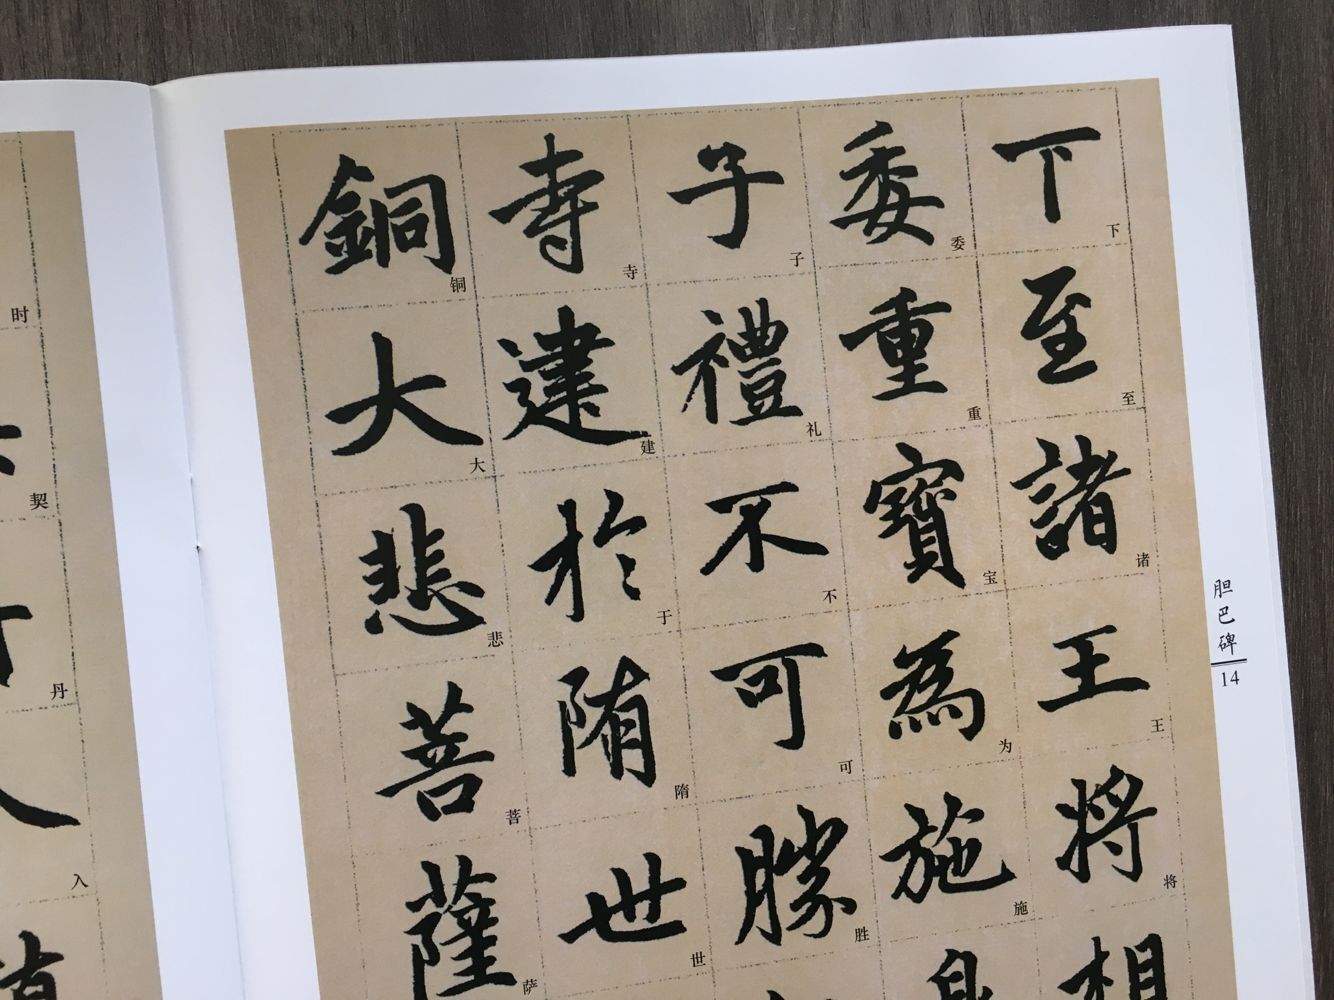 下至諸王將相
委重寶為施身
子禮不可勝
寺建於隋世
銅大悲菩薩
下至诸王将
委重宝为施
子礼不可胜
寺建于隋世
铜大悲菩萨
胆巴碑
14
时契丹入